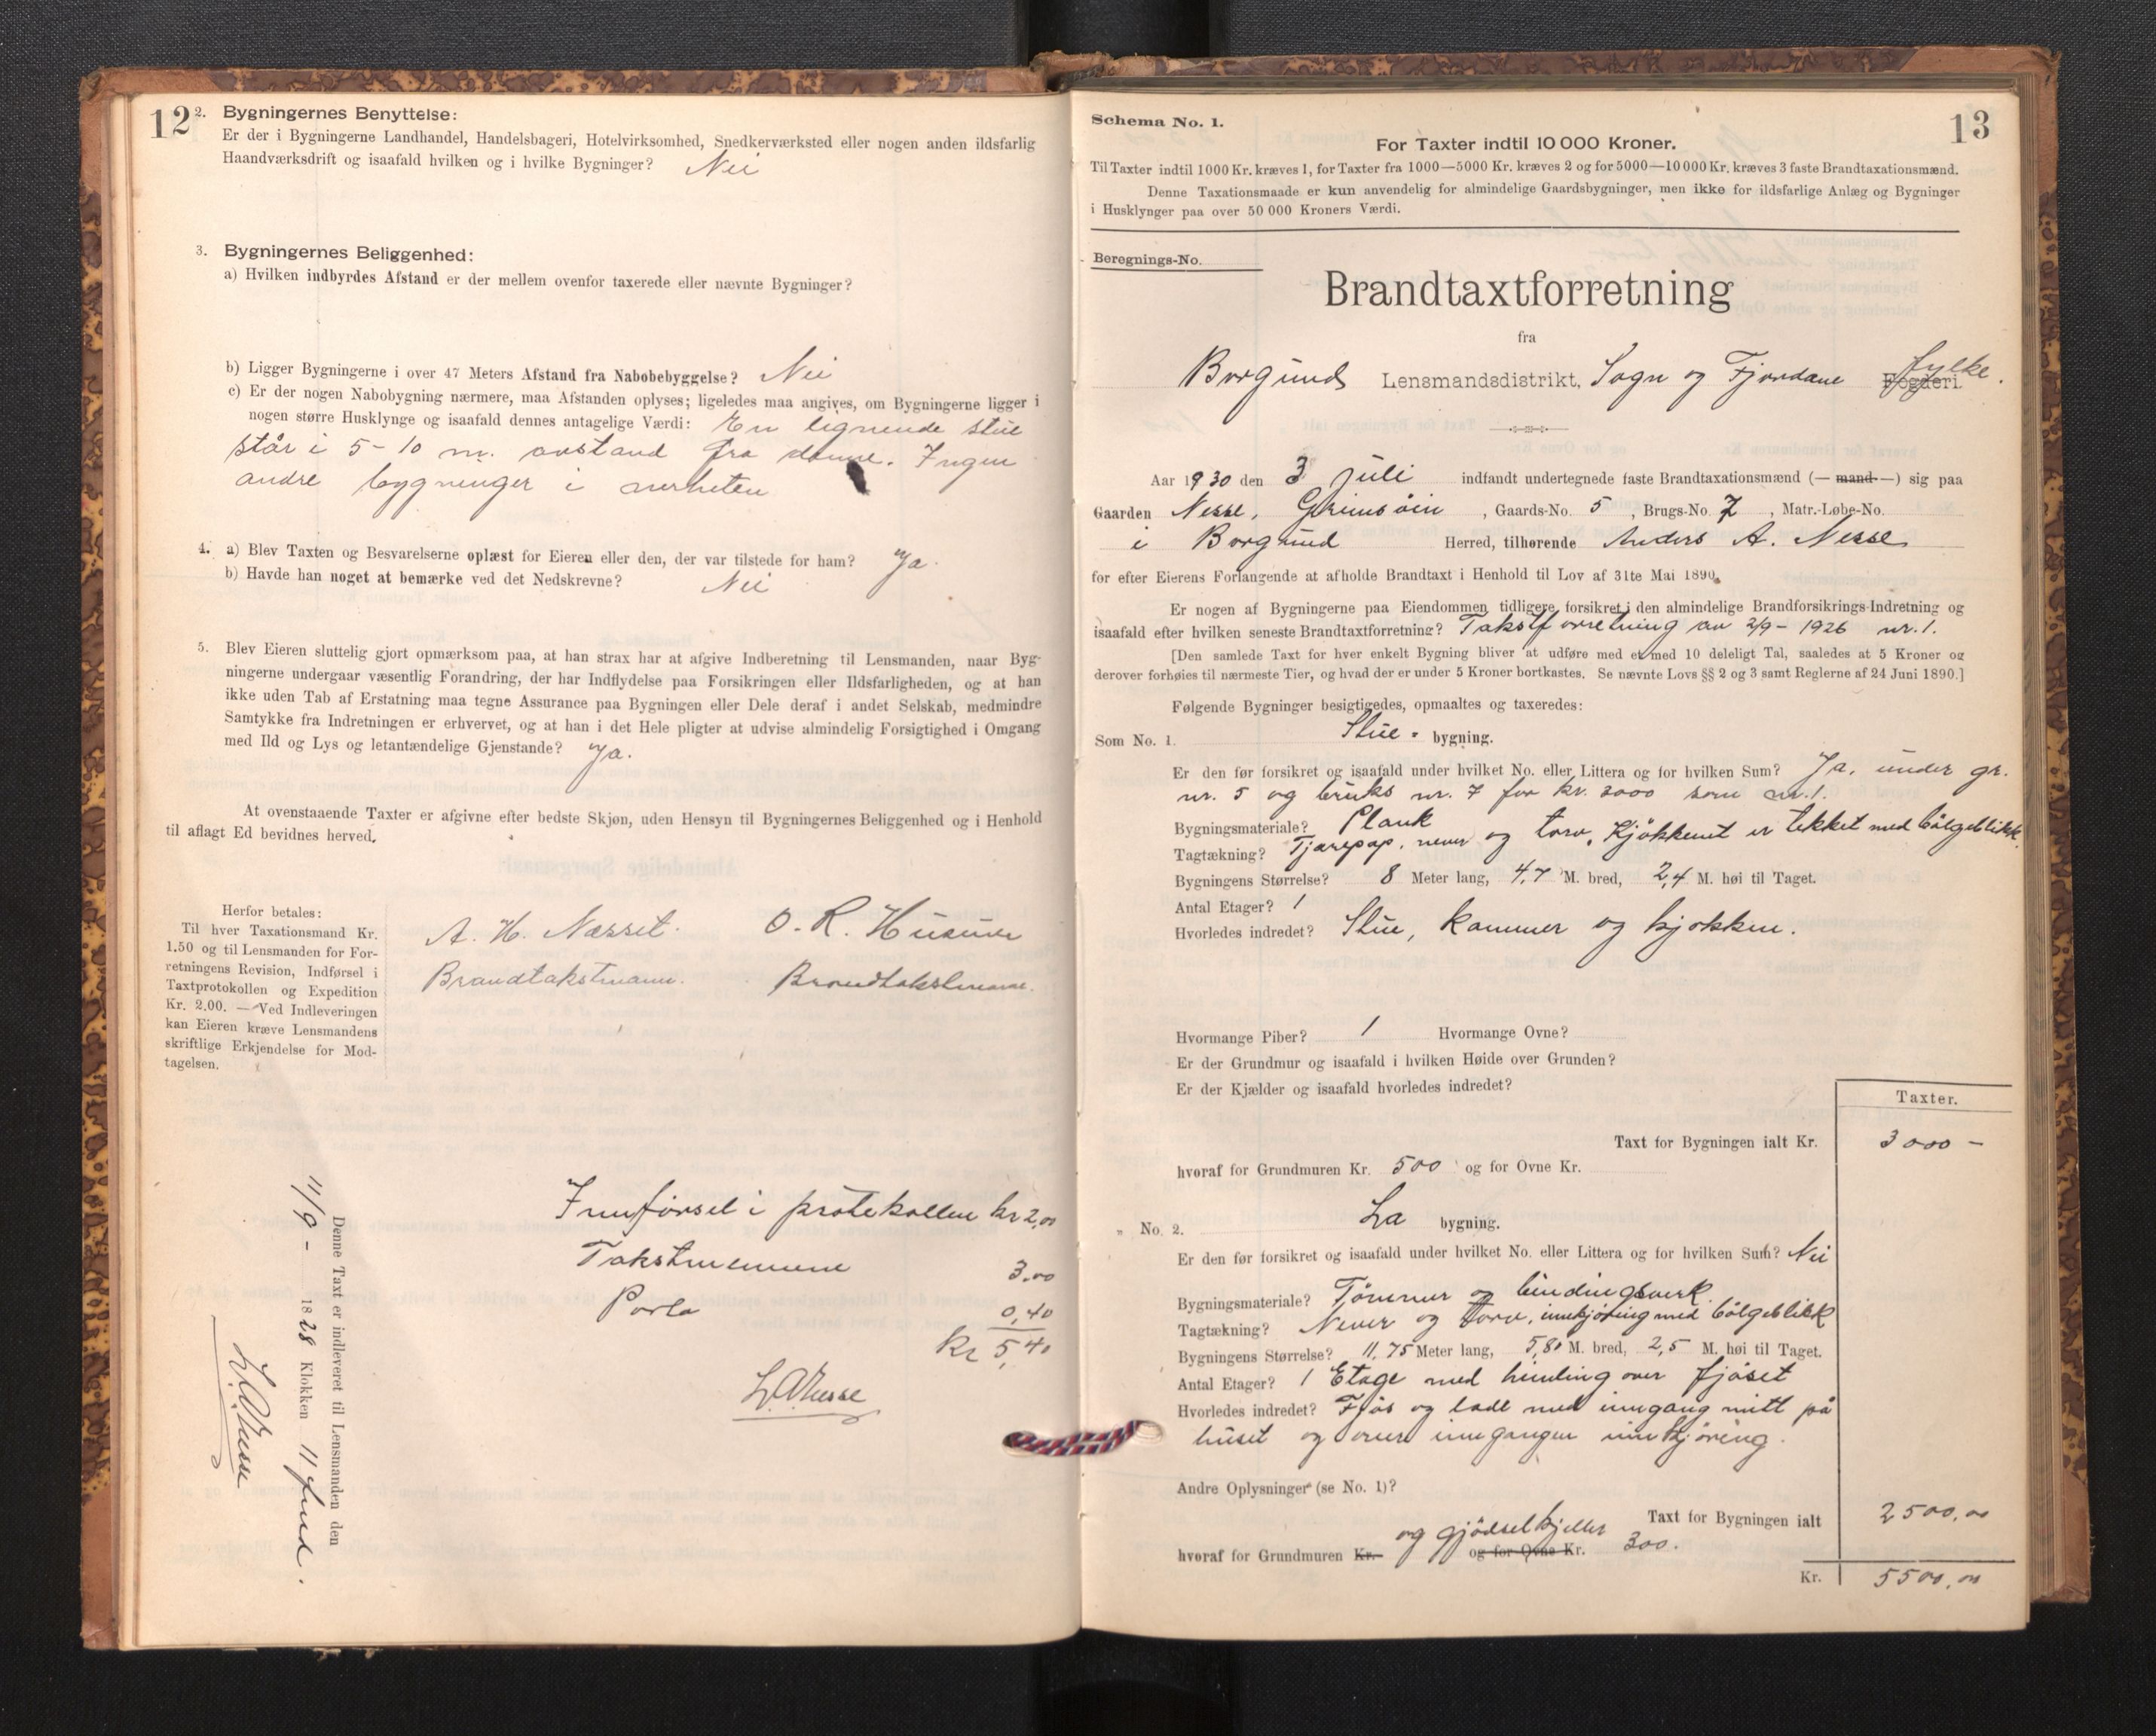 12
2. Bygningernes Benyttelse:
Er der i Bygningerne Landhandel, Handelsbageri, Hotelvirksomhed, Snedkerværksted eller nogen anden ildsfarlig
Haandværksdrift og isaafald hvilken og i hvilke Bygninger? Nei
3. Bygningernes Beliggenhed:
a) Hvilken indbyrdes Afstand er der mellem ovenfor taxerede eller nævnte Bygninger?
b) Ligger Bygningerne i over 47 Meters Afstand fra Nabobebyggelse? Nei
c) Er der nogen Nabobygning nærmere, maa Afstanden oplyses; ligeledes maa angives, om Bygningerne ligger i
nogen større Husklynge og isaafald dennes antagelige Værdi: En lignende stue
står i 5-10 m. avstand fra denne. Ingen
andre bygninger i nerheten
4. a) Blev Taxten og Besvarelserne oplæst for Eieren eller den, der var tilstede for ham? Ja.
b) Havde han noget at bemærke ved det Nedskrevne? Nei
5. Blev Eieren sluttelig gjort opmærksom paa, at han strax har at afgive Indberetning til Lensmanden, naar Byg-
ningerne undergaar væsentlig Forandring, der har Indflydelse paa Forsikringen eller Ildsfarligheden, og at han
ikke uden Tab af Erstatning maa tegne Assurance paa Bygningen eller Dele deraf i andet Selskab, medmindre
Samtykke fra Indretningen er erhvervet, og at han i det Hele pligter at udvise almindelig Forsigtighed i Omgang
med Ild og Lys og letantændelige Gjenstande? Ja.
At ovenstaaende Taxter er afgivne efter bedste Skjøn, uden Hensyn til Bygningernes Beliggenhed og i Henhold
til aflagt Ed bevidnes herved.
Herfor betales:
Til hver Taxationsmand Kr.
1.50 og til Lensmanden for For-
retningens Revision, Indførsel i
Taxtprotokollen og Expedition
Kr. 2.00. — Ved Indleveringen
kan Eieren kræve Lensmandens
skriftlige Erkjendelse for Mod-
tagelsen.
A. H. Næsset. O. R. Husum
Brandtakstmann. Brandtakstmann.
Innførsel i protokollen kr 2,00
Takstmennene 3.00
Porto 0,40
kr 5,40
L. A. Nesse
Denne Taxt er indleveret til Lensmanden den
11/9 - 1828 Klokken 11 fmd.
L. A. Nesse
13
Schema No. 1.
For Taxter indtil 10 000 Kroner.
Til Taxter indtil 1000 Kr. kræves 1, for Taxter fra 1000—5000 Kr. kræves 2 og for 5000—10 000 Kr. kræves 3 faste Brandtaxationsmænd.
Denne Taxationsmaade er kun anvendelig for almindelige Gaardsbygninger, men ikke for ildsfarlige Anlæg og Bygninger
i Husklynger paa over 50 000 Kroners Værdi.
Beregnings-No.
Brandtaxtforretning
fra
Borgunds Lensmandsdistrikt, Sogn og Fjordane Fogderi fylke.
Aar 1930 den 3 juli indfandt undertegnede faste Brandtaxationsmænd (— mand —) sig paa
Gaarden Nesse, Grimsøin, Gaards-No. 5, Brugs-No. 7, Matr.-Løbe-No.
i Borgund Herred, tilhørende Anders A. Nesse
for efter Eierens Forlangende at afholde Brandtaxt i Henhold til Lov af 31te Mai 1890.
Er nogen af Bygningerne paa Eiendommen tidligere forsikret i den almindelige Brandforsikrings-Indretning og
isaafald efter hvilken seneste Brandtaxtforretning? Takstforretning av 2/9 - 1926 nr. 1.
[Den samlede Taxt for hver enkelt Bygning bliver at udføre med et med 10 deleligt Tal, saaledes at 5 Kroner og
derover forhøies til nærmeste Tier, og hvad der er under 5 Kroner bortkastes. Se nævnte Lovs §§ 2 og 3 samt Reglerne af 24 Juni 1890.]
Følgende Bygninger besigtigedes, opmaaltes og taxeredes:
Som No. 1. Stue- bygning.
Er den før forsikret og isaafald under hvilket No. eller Littera og for hvilken Sum? Ja, under gr.
nr. 5 og bruks nr. 7 for kr. 3000 som nr. 1.
Bygningsmateriale? Plank
Tagtækning? Tjærepap, never og torv. Kjøkkenet er tekket med bølgeblikk.
Bygningens Størrelse? 8 Meter lang, 4,7 M. bred, 2,4 M. høi til Taget.
Antal Etager? 1
Hvorledes indredet? Stue, kammer og kjøkken.
Hvormange Piber? 1 Hvormange Ovne?
Er der Grundmur og isaafald i hvilken Høide over Grunden?
Er der Kjælder og isaafald hvorledes indredet?
Taxter.
Taxt for Bygningen ialt Kr. 3000 –
hvoraf for Grundmuren Kr. 500 og for Ovne Kr.
„ No. 2. La bygning.
Er den før forsikret og isaafald under hvilket No. eller Littera og for hvilken Sum? Nei
Bygningsmateriale? Tømmer og bindingsverk.
Tagtækning? Never og torv, innkjøring med bølgeblikk
Bygningens Størrelse? 11,75 Meter lang, 5,80 M. bred, 2,5 M. høi til Taget.
Antal Etager? 1 Etage med himling over fjøset
Hvorledes indredet? Fjøs og lade med inngang mitt på
huset og over inngangen innkjøring.
Andre Oplysninger (se No. 1)?
Taxt for Bygningen ialt 2500,00
hvoraf for Grundmuren Kr. og gjødselkjeller og for Ovne Kr. 300.
Kr. 5500,00